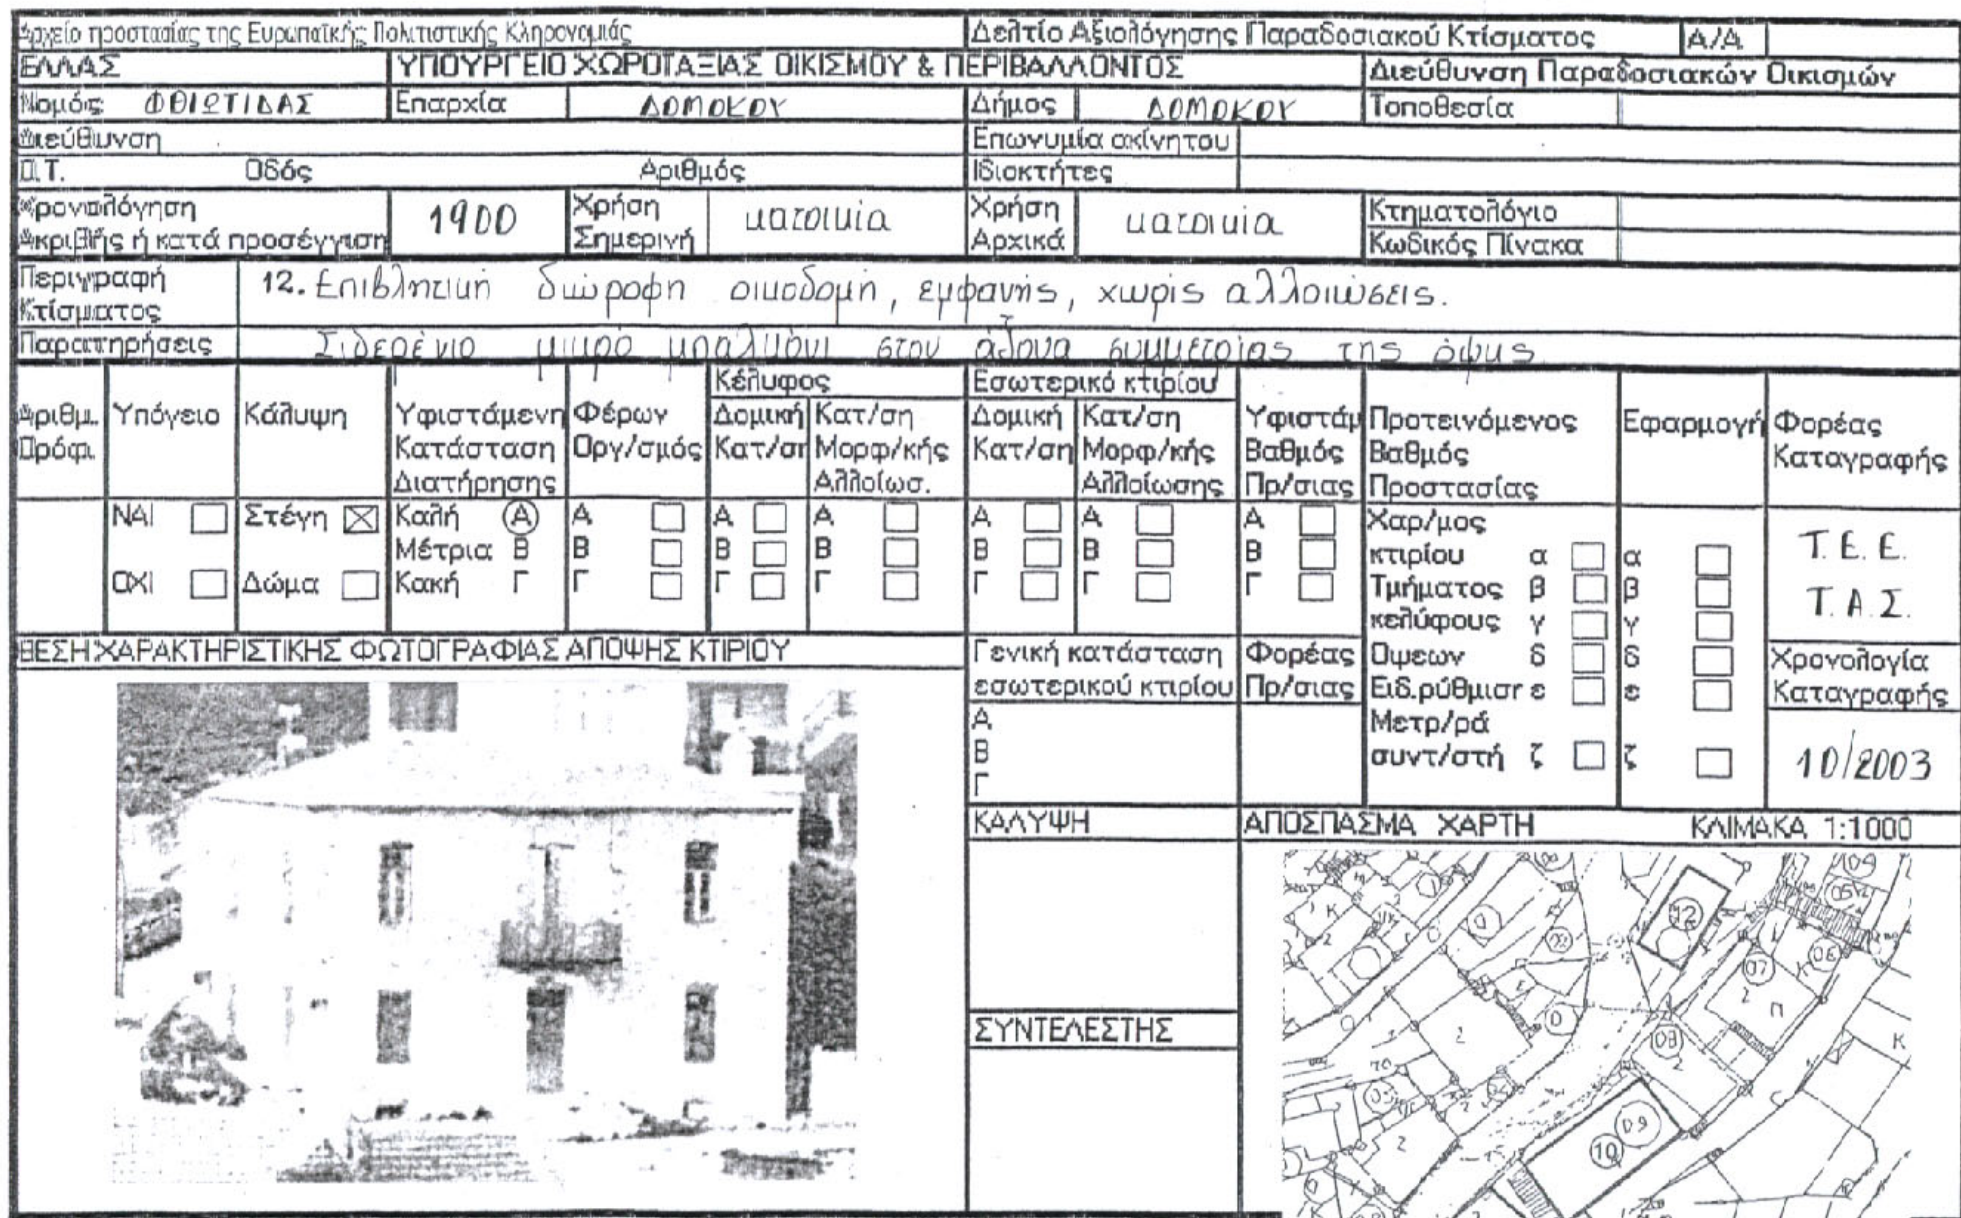 Αρχείο προστασίας της Ευρωπαϊκής Πολιτιστικής Κληρονομιάς Δελτίο Αξιολόγησης Παραδοσιακού Κτίσματος Α/Α
ΕΛΛΑΣ ΥΠΟΥΡΓΕΙΟ ΧΩΡΟΤΑΞΙΑΣ ΟΙΚΙΣΜΟΥ & ΠΕΡΙΒΑΛΛΟΝΤΟΣ Διεύθυνση Παραδοσιακών Οικισμών
Νομός ΦΘΙΩΤΙΔΑΣ Επαρχία ΔΟΜΟΚΟΥ Δήμος ΔΟΜΟΚΟΥ Τοποθεσία
Διεύθυνση Επωνυμία ακίνητου
Ο.Τ. Οδός Αριθμός Ιδιοκτήτες
Χρονολόγηση
Ακριβής ή κατά προσέγγιση 1900 Χρήση Σημερινή κατοικία Χρήση Αρχικά κατοικία Κτηματολόγιο
Κωδικός Πίνακα
Περιγραφή Κτίσματος 12. Επιβλητική διώροφη οικοδομή, εμφανής, χωρίς αλλοιώσεις.
Παρατηρήσεις Σιδερένιο μικρό μπαλκόνι στον άξονα συμμετρίας της όψης
Αριθμ. Όρόφ. Υπόγειο Κάλυψη Υφιστάμενη Κατάσταση Διατήρησης Φέρων Οργ/σμός
Κέλυφος
Δομική Κατ/ση Κατ/ση Μορφ/κής Αλλοίωσ.
Εσωτερικό κτιρίου
Δομική Κατ/ση Κατ/ση Μορφ/κής Αλλοίωσης
Υφιστάμ Βαθμός Πρ/σιας
Προτεινόμενος Βαθμός Προστασίας
Εφαρμογή
Φορέας Καταγραφής
ΝΑΙ Στέγη Καλή Α Α Α Α Α Α Α
Μέτρια Β Β Β Β Β Β Β
ΟΧΙ Δώμα Κακή Γ Γ Γ Γ Γ Γ Γ
Χαρ/μος
κτιρίου α α
Τμήματος β β
κελύφους γ γ
Όψεων δ δ
Ειδ.ρύθμισr ε ε
Μετρ/ρά
συντ/στή ζ ζ
Τ.Ε.Ε.
Τ.Α.Σ.
Χρονολογία
Καταγραφής
10/2003
ΘΕΣΗ ΧΑΡΑΚΤΗΡΙΣΤΙΚΗΣ ΦΩΤΟΓΡΑΦΙΑΣ ΑΠΟΨΗΣ ΚΤΙΡΙΟΥ
Γενική κατάσταση
εσωτερικού κτιρίου
Α
Β
Γ
Φορέας
Πρ/σιας
ΚΑΛΥΨΗ
ΣΥΝΤΕΛΕΣΤΗΣ
ΑΠΟΣΠΑΣΜΑ ΧΑΡΤΗ ΚΛΙΜΑΚΑ 1:1000
12
07
06
08
09
10